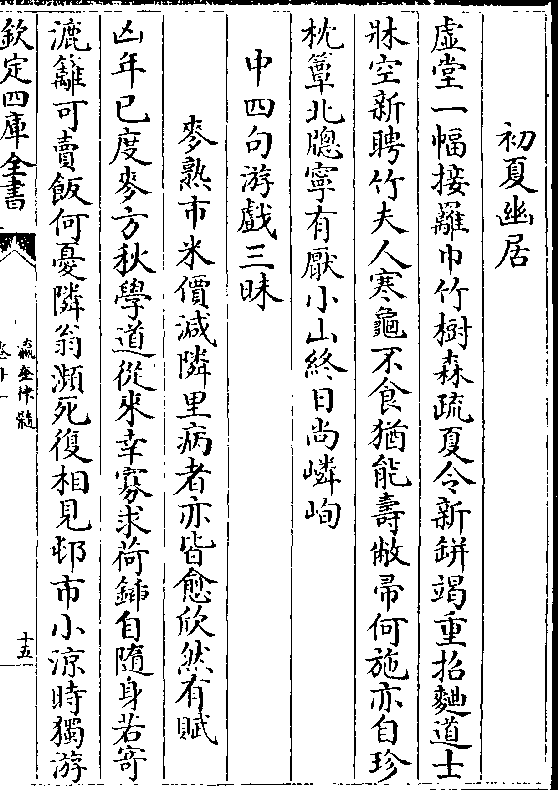 初夏幽居
虛堂一幅接䍦巾竹樹森疏夏令新缾竭重招麴道士
牀空新聘竹夫人寒龜不食猶能壽敝帚何施亦自珍
枕簟北牕寧有厭小山終日尚嶙峋
中四句游戲三昧
麥熟市米價減隣里病者亦皆愈欣然有賦
凶年已度麥方秋學道從來幸寡求荷鍤自隨身若寄
漉籬可賣飯何憂隣翁瀕死復相見邨市小涼時獨游
欽定四庫全書
瀛奎律髓
十五